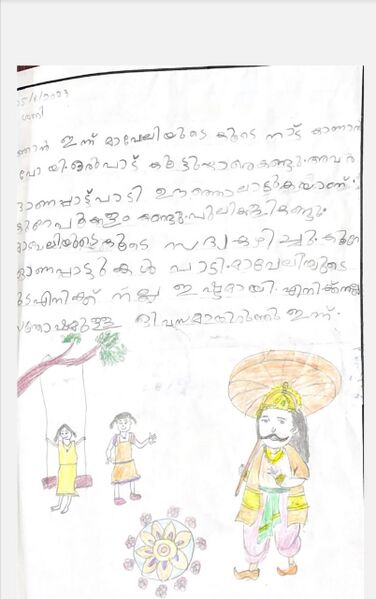 25/8/2023
ശനി
ഞാൻ ഇന്ന് മാവേലിയുടെ കൂടെ നാട്ട് കാണാൻ
പോയി. ഒരുപാട് കുട്ടികളെ കണ്ടു. അവർ
ഓണപ്പാട്ട് പാടി ഊഞ്ഞാലാട്ടുകയാണ്.
കുറെ പൂക്കളം കണ്ടു. പുലികളി കണ്ടു.
മാവേലിയുടെ കൂടെ സദ്യ കഴിച്ചു. കുറെ
ഓണപ്പാട്ടുകൾ പാടി. മാവേലിയുടെ
എനിക്ക് നല്ല ഇഷ്ടമായി. എനിക്ക് നല്ല
സന്തോഷമുള്ള ദിവസമായിരുന്നു ഇന്ന്.